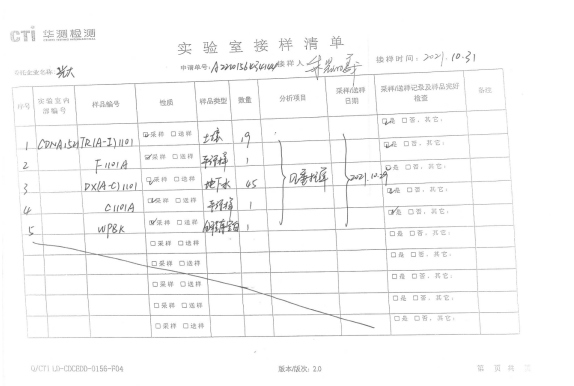 CTI 华测检测
实验室接样清单
受托企业名称: 申请单号: 接样人 接样时间: 2021.10.31
序号 实验室内部编号 样品编号 性质 样品类型 数量 分析项目 采样/送样日期 采样/送样记录及样品完好检查 备注
☑是 ☐否, 其它:
1 TR(A-I)1101 ☑采样 ☐送样 土壤 19 ☑是 ☐否, 其它:
2 F1101A ☑采样 ☐送样 平行样 1 ☑是 ☐否, 其它:
3 DX(A-C)1101 ☑采样 ☐送样 地下水 45 2021.10.29 ☑是 ☐否, 其它:
4 C1101A ☑采样 ☐送样 平行样 1 ☑是 ☐否, 其它:
5 WPBK ☑采样 ☐送样 1
☐采样 ☐送样 ☐是 ☐否, 其它:
☐采样 ☐送样 ☐是 ☐否, 其它:
☐采样 ☐送样 ☐是 ☐否, 其它:
☐采样 ☐送样 ☐是 ☐否, 其它:
☐采样 ☐送样 ☐是 ☐否, 其它:
Q/CTI LD-CDCEDD-0156-F04 版本/版次: 2.0 第 页 共 页